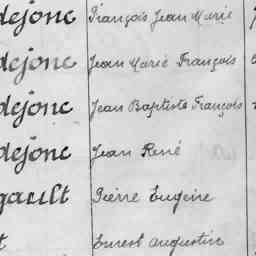 dejonc François Jean Marie
dejonc Jean Marie François
dejonc Jean Baptiste François
dejonc Jean René
gault Pierre Eugène
t Ernest Augustin